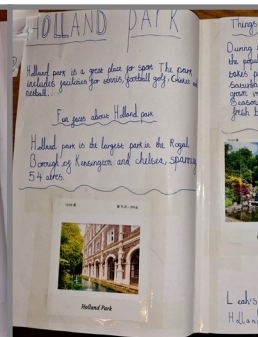 HOLLAND PARK
Holland park is a great place for sport. The park
includes facilities for tennis, football, golf, cricket and
netball.
Fun facts about Holland park
Holland park is the largest park in the Royal
Borough of Kensington and chelsea, spanning
54 acres.
Holland Park
Things
During
the popul
takes p
Saturda
grown ve
Season
fresh b
Leah's
Holland